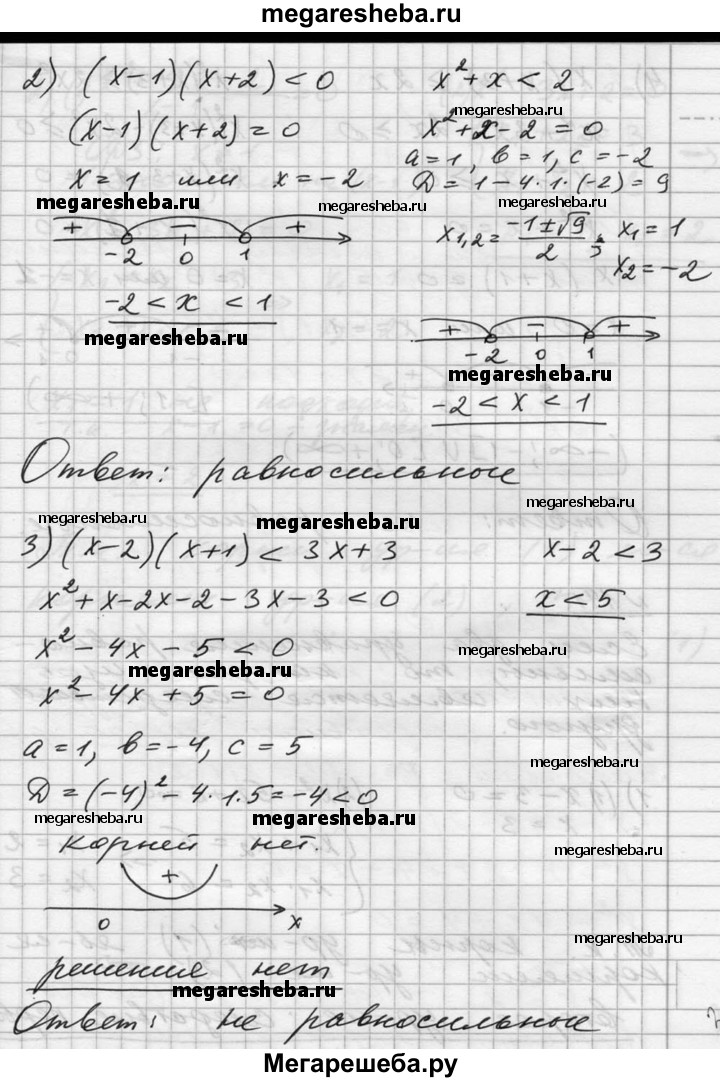 megaresheba.ru
2) (x-1)(x+2) < 0
x² + x < 2
megaresheba.ru
(x-1)(x+2) = 0
x² + x - 2 = 0
x = 1 или x = -2
a = 1, b = 1, c = -2
D = 1 - 4·1·(-2) = 9
megaresheba.ru
megaresheba.ru
megaresheba.ru
+ − +
-2 0 1
x₁,₂ = (-1±√9)/2 ; x₁ = 1
x₂ = -2
-2 < x < 1
megaresheba.ru
+ − +
-2 0 1
megaresheba.ru
-2 < x < 1
Ответ: равносильные
megaresheba.ru
megaresheba.ru
megaresheba.ru
3) (x-2)(x+1) < 3x+3
x-2 < 3
x² + x - 2x - 2 - 3x - 3 < 0
x < 5
x² - 4x - 5 < 0
megaresheba.ru
megaresheba.ru
x² - 4x + 5 = 0
a = 1, b = -4, c = 5
megaresheba.ru
D = (-4)² - 4·1·5 = -4 < 0
megaresheba.ru
megaresheba.ru
корней нет.
megaresheba.ru
+
0 x
megaresheba.ru
решение нет
megaresheba.ru
Ответ: не равносильные
Мегарешеба.ру